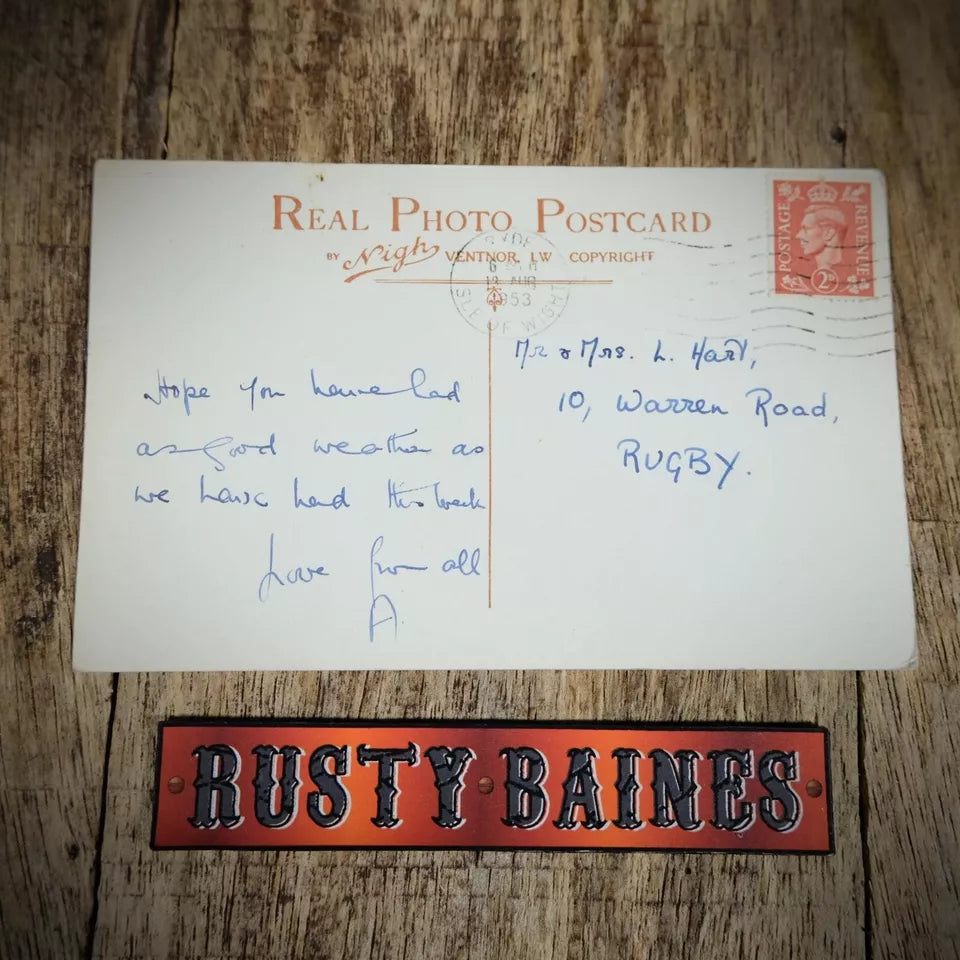 REAL PHOTO POSTCARD
BY Nigh VENTNOR, I.W COPYRIGHT
RYDE
6 PM
AUG
1953
ISLE OF WIGHT
POSTAGE REVENUE
2D
Mr & Mrs. L. Hart,
10, Warren Road,
RUGBY.
Hope you have had
as good weather as
we have had this week
Love from all
A
RUSTY BAINES